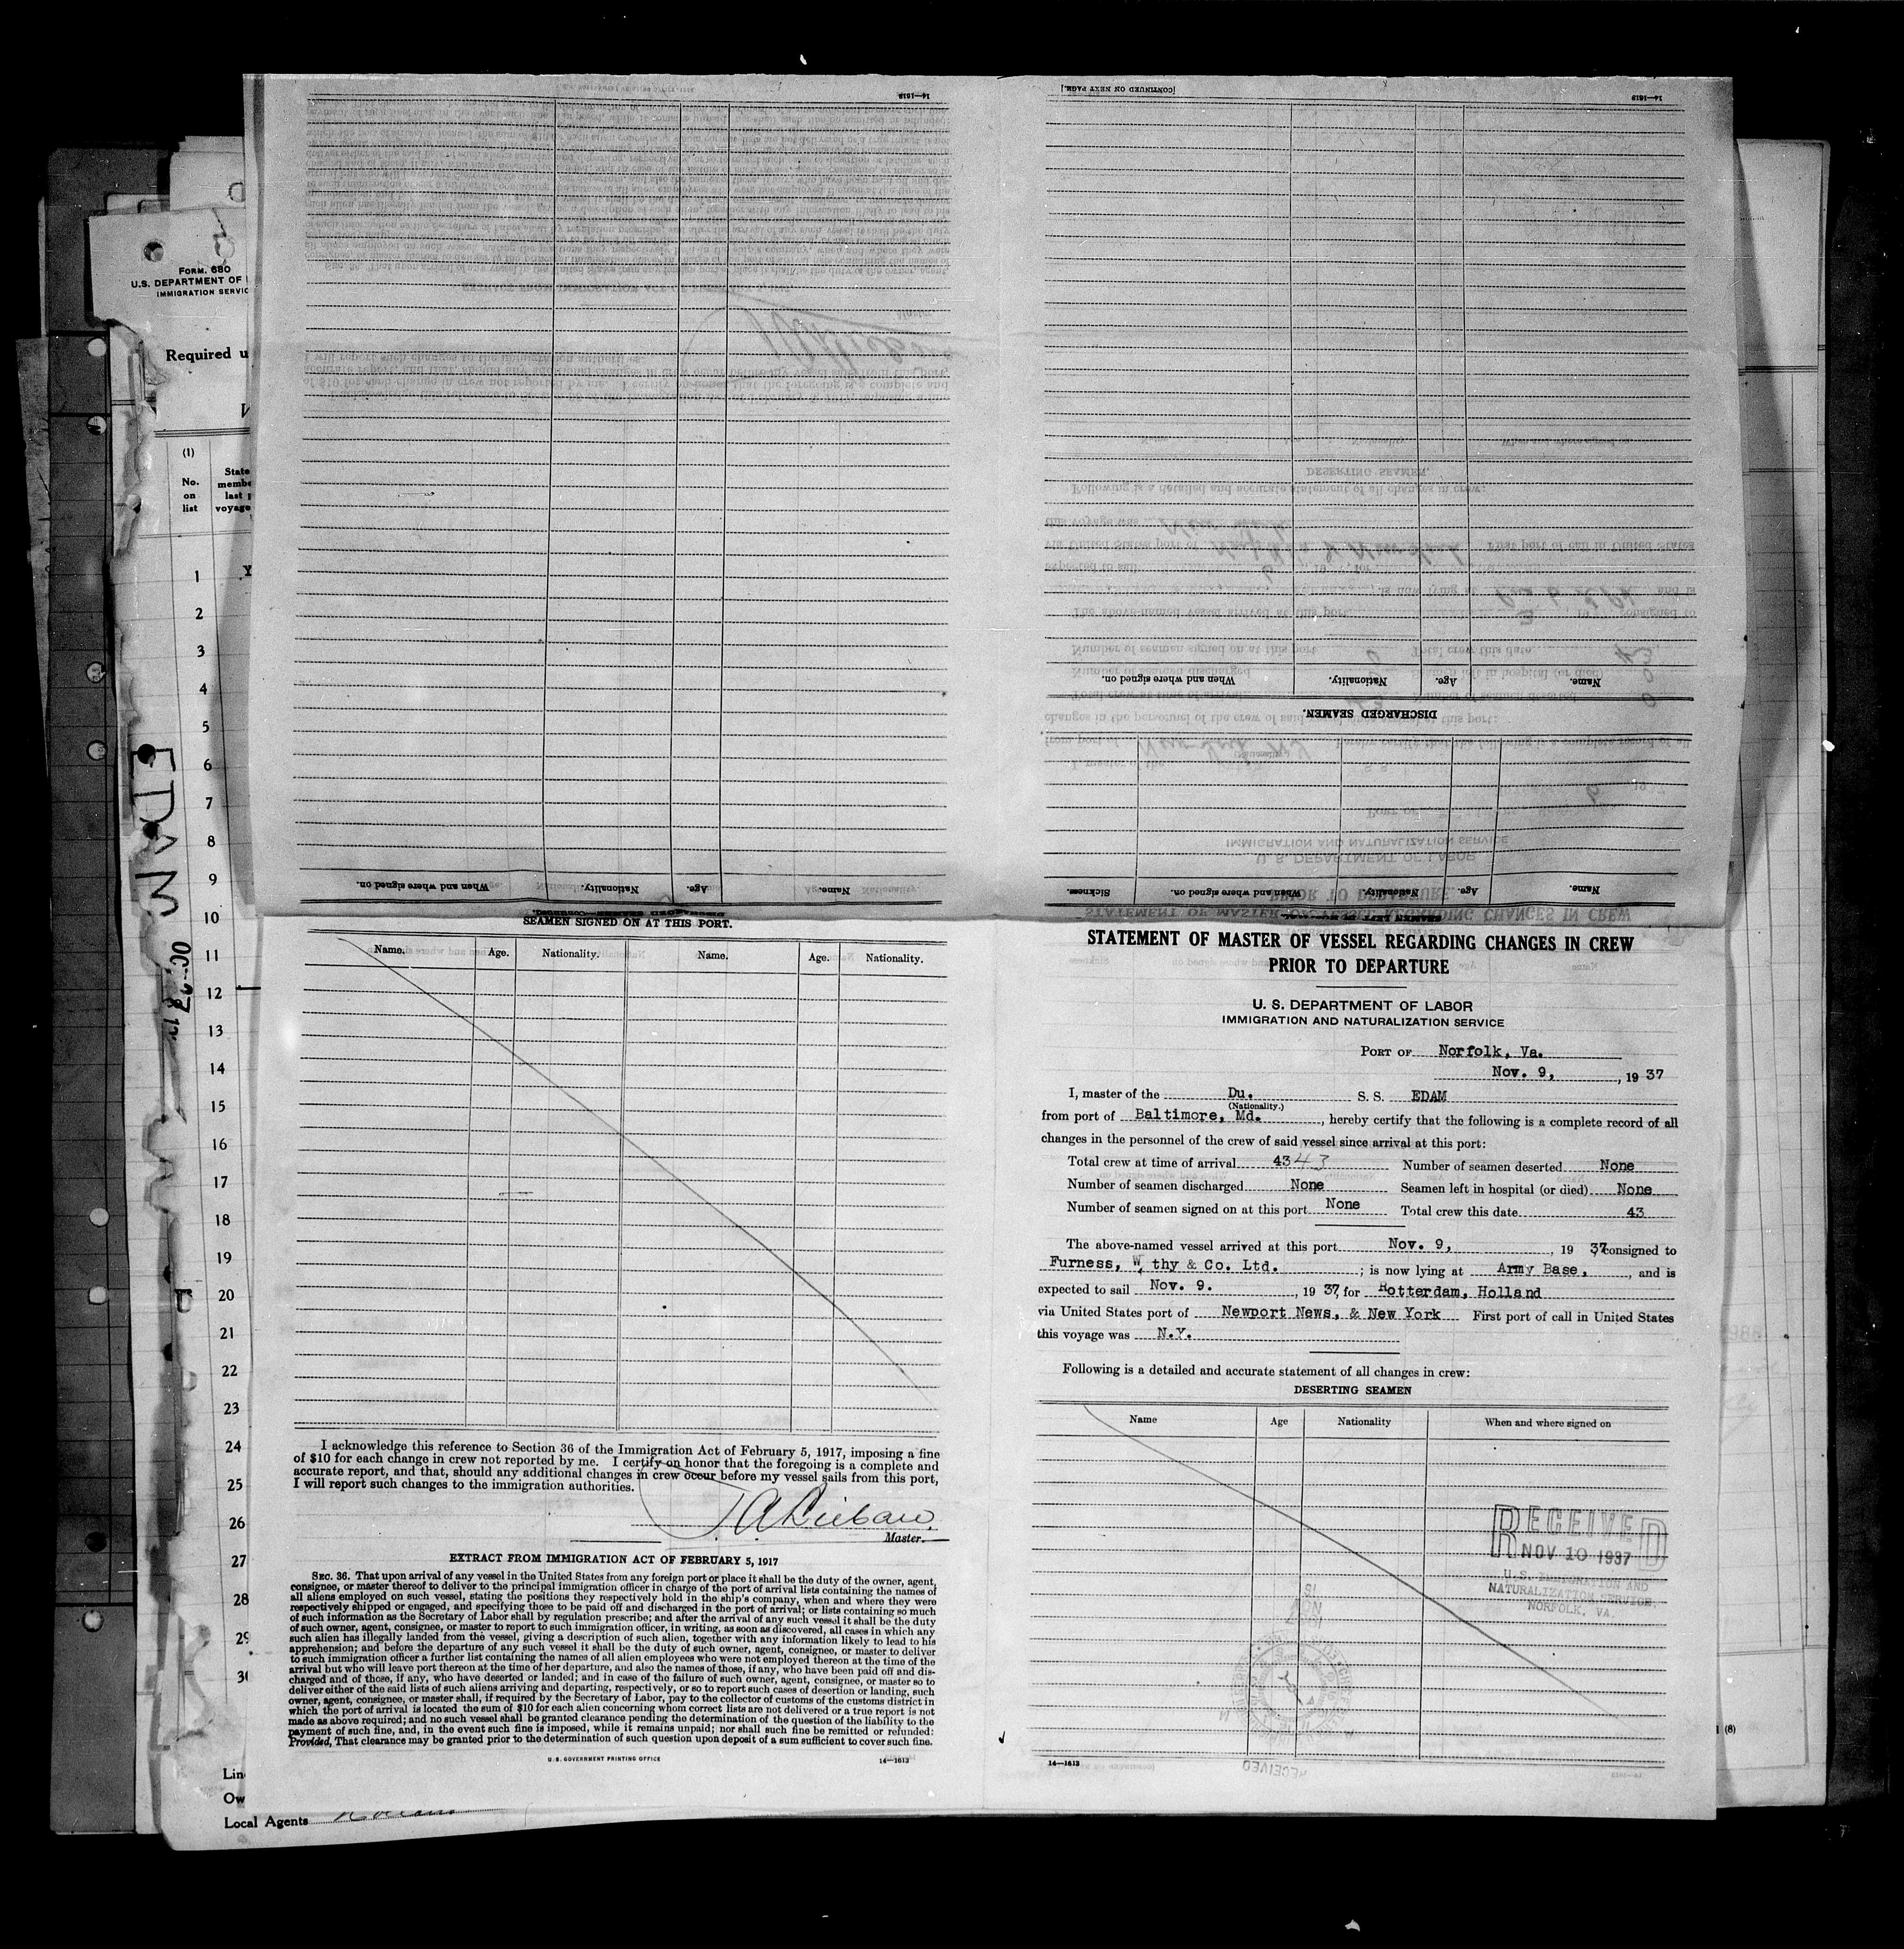 FORM. 680
U.S. DEPARTMENT OF
IMMIGRATION SERVIC
Required u
(1)
No. on list
State
membe
last p
voyage
1
2
3
4
5
6
7
8
9
10
11
12
13
14
15
16
17
18
19
20
21
22
23
24
25
26
27
28
29
30
EDAM
Lin
Ow
Local Agents
14—1613
[CONTINUED ON NEXT PAGE.]
14—1613
Name. Age. Nationality. When and where signed on.
DISCHARGED SEAMEN.
Name. Age. Nationality. When and where signed on.
Name. Age. Nationality. When and where signed on. Sickness.
SEAMEN SIGNED ON AT THIS PORT.
Name. Age. Nationality. Name. Age. Nationality.
I acknowledge this reference to Section 36 of the Immigration Act of February 5, 1917, imposing a fine
of $10 for each change in crew not reported by me. I certify on honor that the foregoing is a complete and
accurate report, and that, should any additional changes in crew occur before my vessel sails from this port,
I will report such changes to the immigration authorities.
Master.
EXTRACT FROM IMMIGRATION ACT OF FEBRUARY 5, 1917
SEC. 36. That upon arrival of any vessel in the United States from any foreign port or place it shall be the duty of the owner, agent,
consignee, or master thereof to deliver to the principal immigration officer in charge of the port of arrival lists containing the names of
all aliens employed on such vessel, stating the positions they respectively hold in the ship's company, when and where they were
respectively shipped or engaged, and specifying those to be paid off and discharged in the port of arrival; or lists containing so much
of such information as the Secretary of Labor shall by regulation prescribe; and after the arrival of any such vessel it shall be the duty
of such owner, agent, consignee, or master to report to such immigration officer, in writing, as soon as discovered, all cases in which any
such alien has illegally landed from the vessel, giving a description of such alien, together with any information likely to lead to his
apprehension; and before the departure of any such vessel it shall be the duty of such owner, agent, consignee, or master to deliver
to such immigration officer a further list containing the names of all alien employees who were not employed thereon at the time of the
arrival but who will leave port thereon at the time of her departure, and also the names of those, if any, who have been paid off and dis-
charged and of those, if any, who have deserted or landed; and in case of the failure of such owner, agent, consignee, or master so to
deliver either of the said lists of such aliens arriving and departing, respectively, or so to report such cases of desertion or landing, such
owner, agent, consignee, or master shall, if required by the Secretary of Labor, pay to the collector of customs of the customs district in
which the port of arrival is located the sum of $10 for each alien concerning whom correct lists are not delivered or a true report is not
made as above required; and no such vessel shall be granted clearance pending the determination of the question of the liability to the
payment of such fine, and, in the event such fine is imposed, while it remains unpaid; nor shall such fine be remitted or refunded:
Provided, That clearance may be granted prior to the determination of such question upon deposit of a sum sufficient to cover such fine.
U.S. GOVERNMENT PRINTING OFFICE 14—1613
STATEMENT OF MASTER OF VESSEL REGARDING CHANGES IN CREW
PRIOR TO DEPARTURE
U. S. DEPARTMENT OF LABOR
IMMIGRATION AND NATURALIZATION SERVICE
PORT OF Norfolk, Va.
Nov. 9, , 19 37
I, master of the Du. S. S. EDAM
(Nationality.)
from port of Baltimore, Md. , hereby certify that the following is a complete record of all
changes in the personnel of the crew of said vessel since arrival at this port:
Total crew at time of arrival 43 43 Number of seamen deserted None
Number of seamen discharged None Seamen left in hospital (or died) None
Number of seamen signed on at this port None Total crew this date 43
The above-named vessel arrived at this port Nov. 9, , 19 37 consigned to
Furness, W thy & Co. Ltd. ; is now lying at Army Base, , and is
expected to sail Nov. 9. , 19 37, for Rotterdam, Holland
via United States port of Newport News, & New York First port of call in United States
this voyage was N.Y.
Following is a detailed and accurate statement of all changes in crew:
DESERTING SEAMEN
Name Age Nationality When and where signed on
RECEIVED
NOV 10 1937
U.S. IMMIGRATION AND
NATURALIZATION SERVICE,
NORFOLK, VA.
RECEIVED
14—1613
(8)